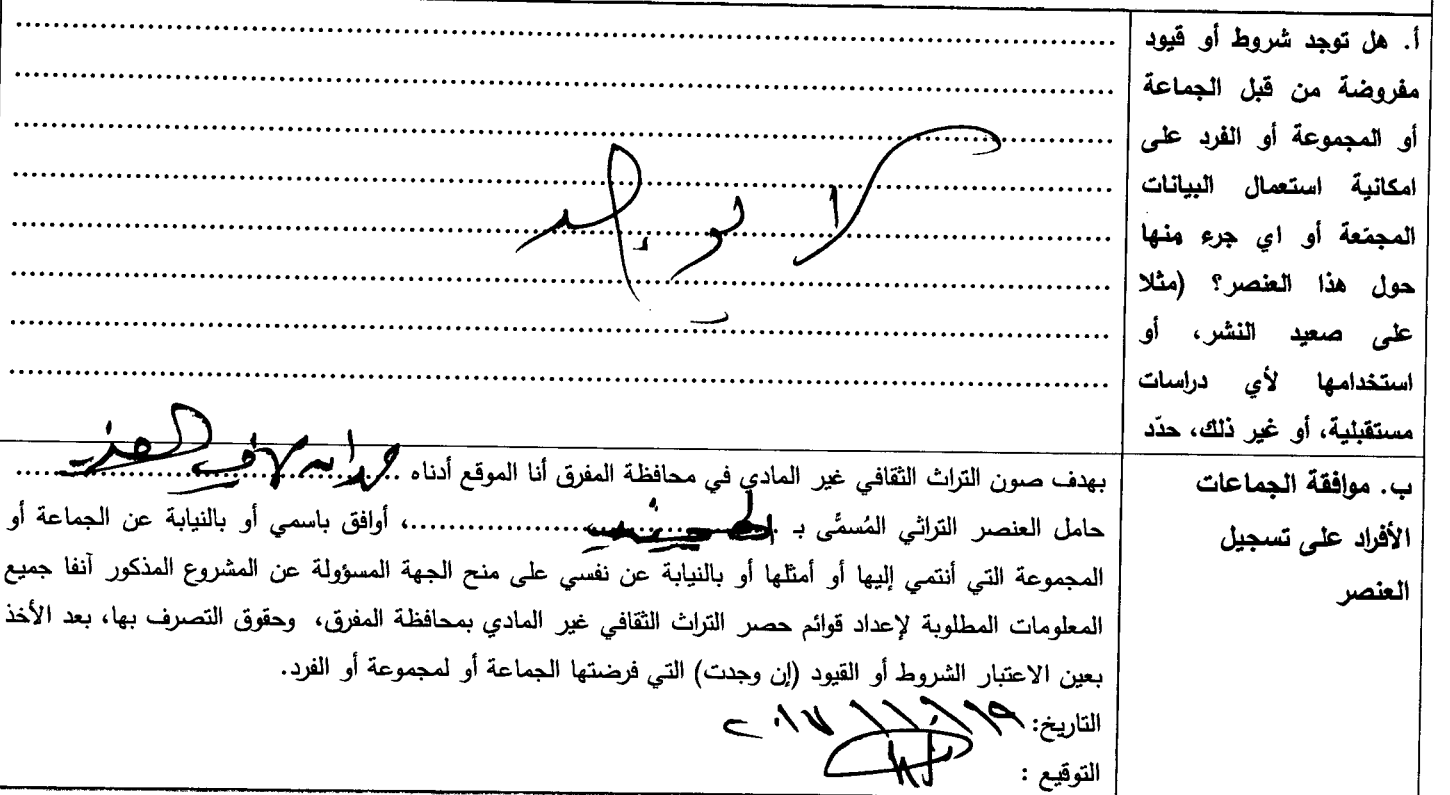 أ. هل توجد شروط أو قيود
مفروضة من قبل الجماعة
أو المجموعة أو الفرد على
امكانية استعمال البيانات
المجمّعة أو اي جرء منها
حول هذا العنصر؟ (مثلا
على صعيد النشر، أو
استخدامها لأي دراسات
مستقبلية، أو غير ذلك، حدّد
لا يوجد
ب. موافقة الجماعات
الأفراد على تسجيل
العنصر
بهدف صون التراث الثقافي غير المادي في محافظة المفرق أنا الموقع أدناه
حامل العنصر التراثي المُسمَّى بـ ........................، أوافق باسمي أو بالنيابة عن الجماعة أو
المجموعة التي أنتمي إليها أو أمثلها أو بالنيابة عن نفسي على منح الجهة المسؤولة عن المشروع المذكور آنفا جميع
المعلومات المطلوبة لإعداد قوائم حصر التراث الثقافي غير المادي بمحافظة المفرق، وحقوق التصرف بها، بعد الأخذ
بعين الاعتبار الشروط أو القيود (إن وجدت) التي فرضتها الجماعة أو لمجموعة أو الفرد.
التاريخ: ١٩/١١/٢٠١٧
التوقيع :